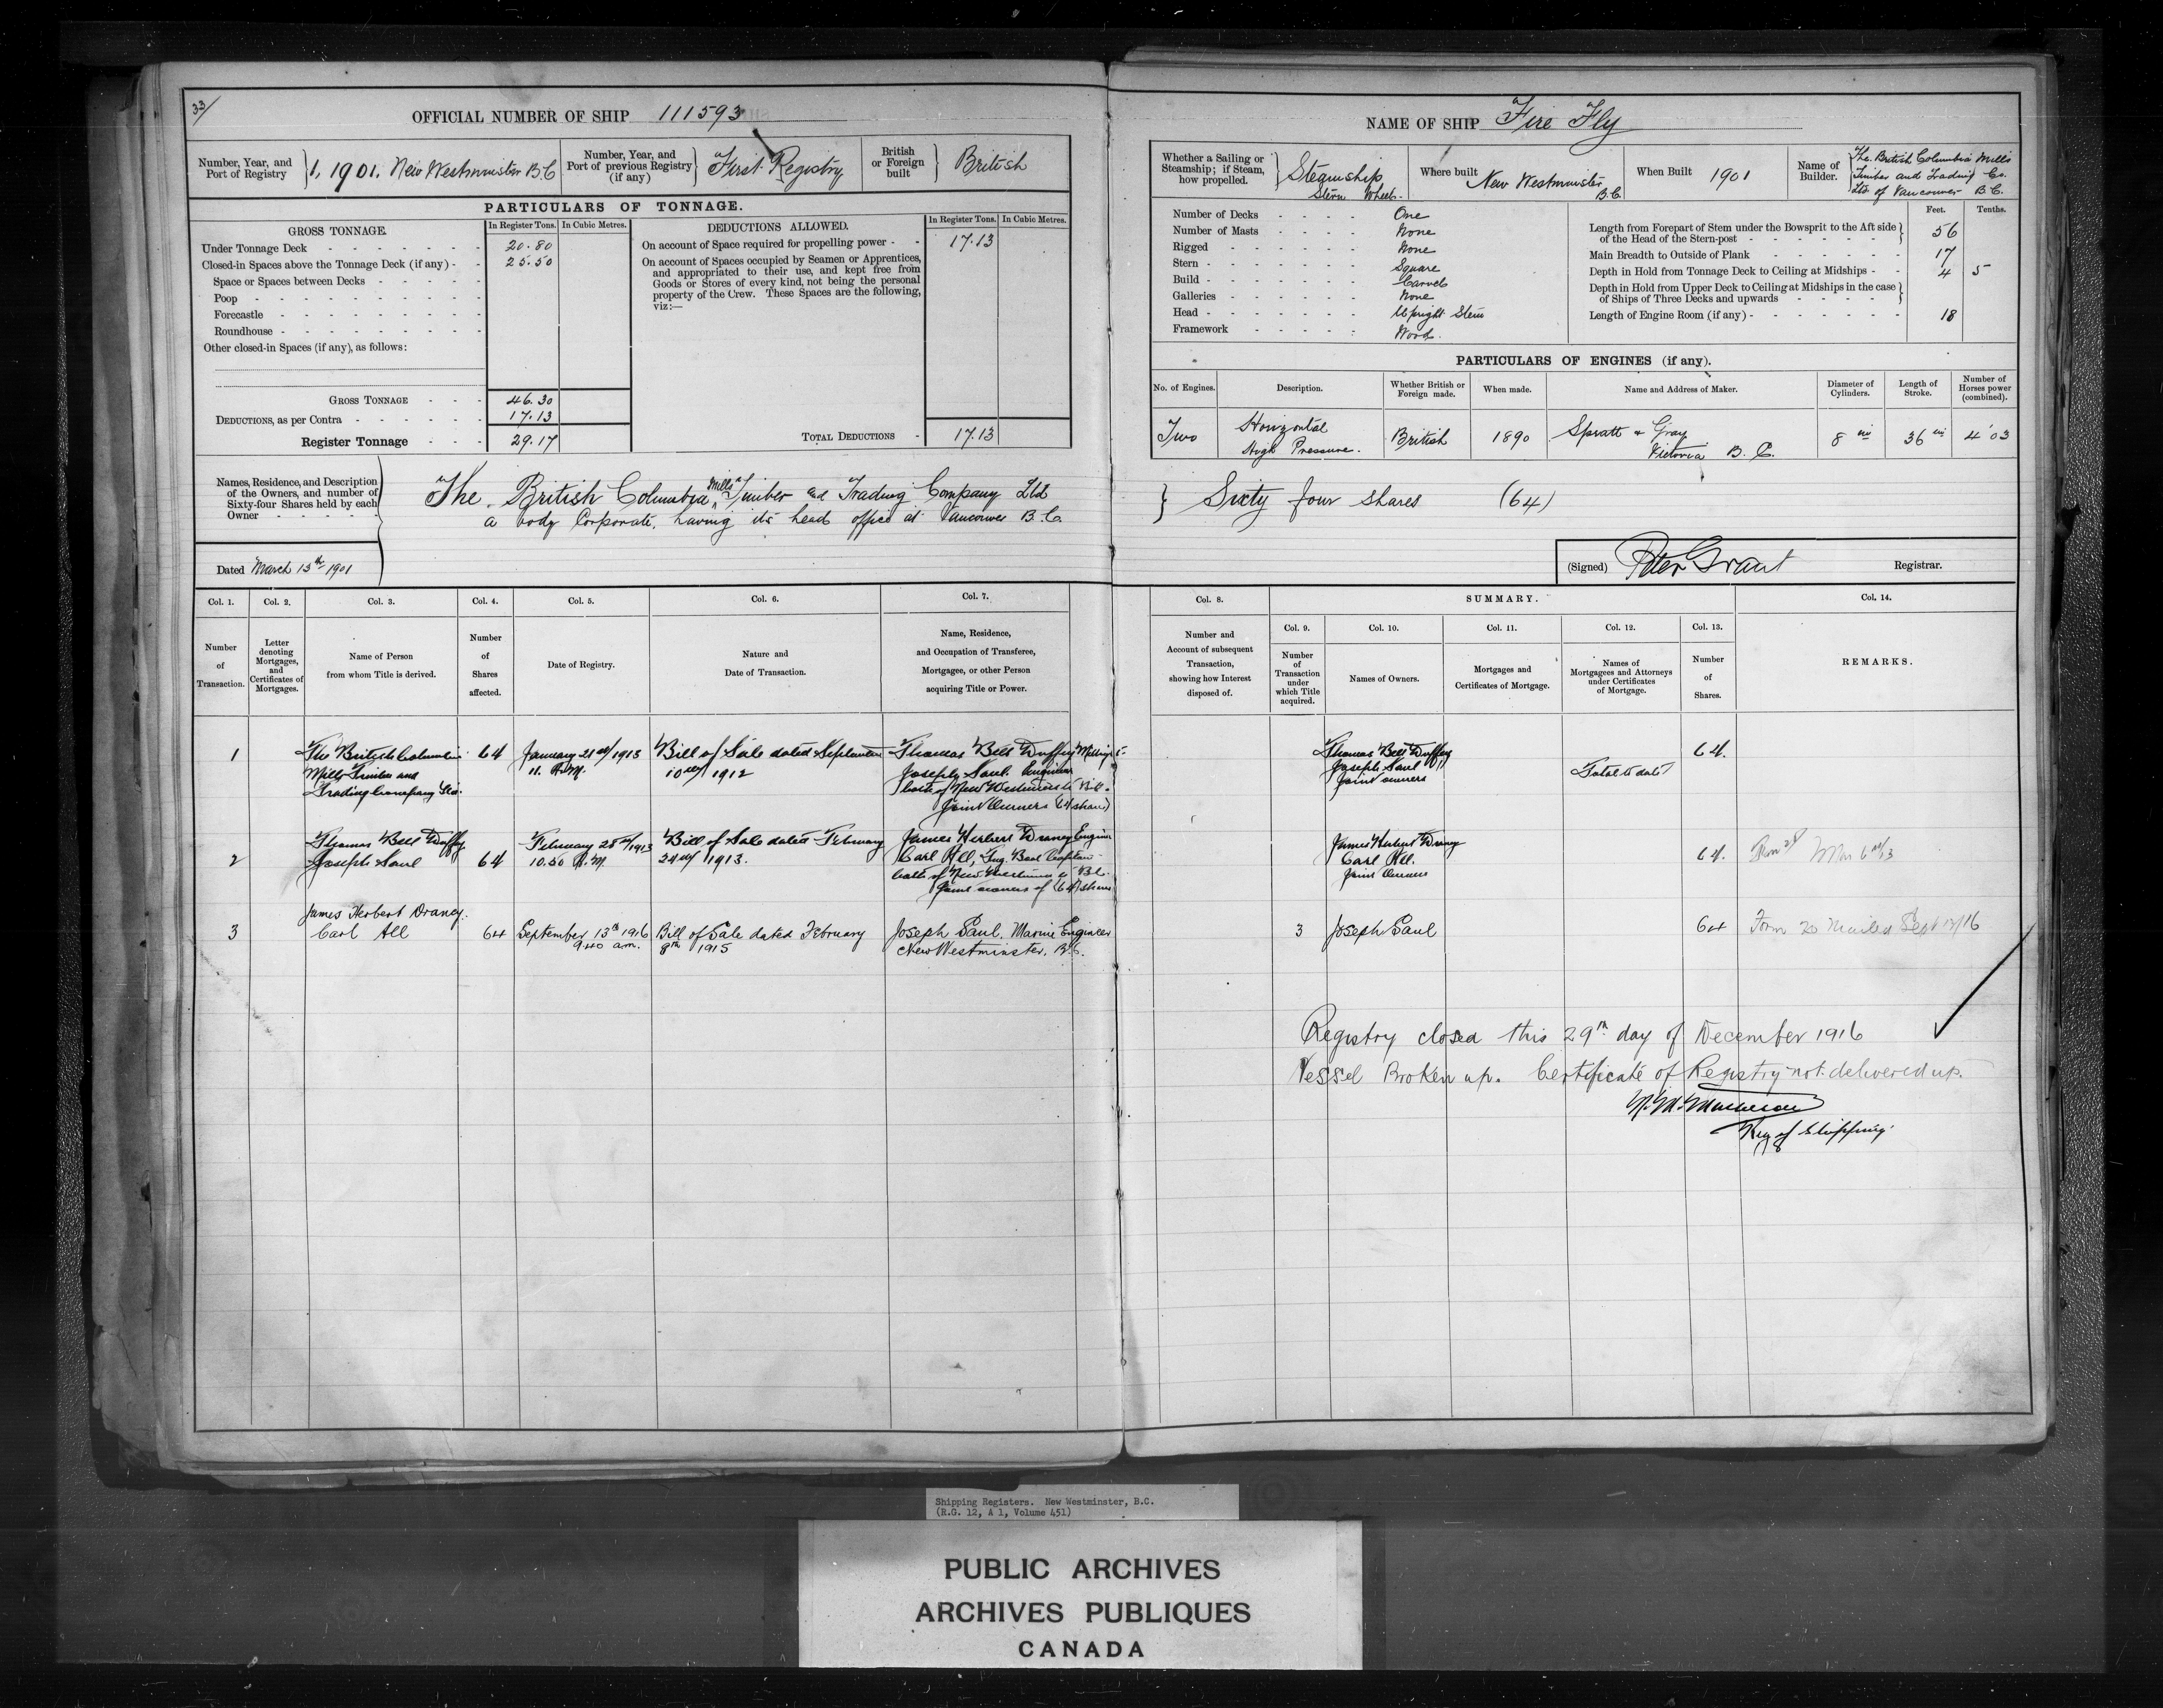 33/
OFFICIAL NUMBER OF SHIP 111593
Number, Year, and Port of Registry
1, 1901. New Westminster B.C
Number, Year, and Port of previous Registry (if any)
First Registry
British or Foreign built
British
PARTICULARS OF TONNAGE.
GROSS TONNAGE.
In Register Tons. In Cubic Metres.
Under Tonnage Deck 20.80
Closed-in Spaces above the Tonnage Deck (if any) 25.50
Space or Spaces between Decks
Poop
Forecastle
Roundhouse
Other closed-in Spaces (if any), as follows:
GROSS TONNAGE 46.30
DEDUCTIONS, as per Contra 17.13
Register Tonnage 29.17
DEDUCTIONS ALLOWED.
In Register Tons. In Cubic Metres.
On account of Space required for propelling power 17.13
On account of Spaces occupied by Seamen or Apprentices,
and appropriated to their use, and kept free from
Goods or Stores of every kind, not being the personal
property of the Crew. These Spaces are the following,
viz:—
TOTAL DEDUCTIONS 17.13
Names, Residence, and Description
of the Owners, and number of
Sixty-four Shares held by each
Owner
The British Columbia Mills Timber and Trading Company Ltd
a body Corporate, having its head office at Vancouver B.C.
Dated March 13th 1901
Col. 1. Col. 2. Col. 3. Col. 4. Col. 5. Col. 6. Col. 7.
Number of Transaction.
Letter denoting Mortgages, and Certificates of Mortgages.
Name of Person from whom Title is derived.
Number of Shares affected.
Date of Registry.
Nature and Date of Transaction.
Name, Residence, and Occupation of Transferee, Mortgagee, or other Person acquiring Title or Power.
1
The British Columbia
Mills Timber and
Trading Company Ltd.
64
January 21st/1913
11. A.M.
Bill of Sale dated September
10th/1912
Thomas Bell Duffy
Joseph Saul. Engineer
both of New Westminster B.C.
Joint Owners (64 shares)
2
Thomas Bell Duffy
Joseph Saul
64
February 28th/1913
10.50 A.M.
Bill of Sale dated February
24th/1913.
James Herbert Draney Engineer
Carl All, Tug Boat Captain
both of New Westminster B.C.
Joint owners of (64) shares
3
James Herbert Draney.
Carl All
64
September 13th 1916
9.40 a.m.
Bill of Sale dated February
8th 1915
Joseph Saul, Marine Engineer
New Westminster, B.C.
NAME OF SHIP Fire Fly
Whether a Sailing or Steamship; if Steam, how propelled.
Steamship
Stern Wheel.
Where built
New Westminster
B.C.
When Built 1901
Name of Builder.
The British Columbia Mills
Timber and Trading Co.
Ltd of Vancouver B.C.
Number of Decks One
Number of Masts None
Rigged None
Stern Square
Build Carvel
Galleries None
Head Upright Stem
Framework Wood.
Feet. Tenths.
Length from Forepart of Stem under the Bowsprit to the Aft side
of the Head of the Stern-post 56
Main Breadth to Outside of Plank 17
Depth in Hold from Tonnage Deck to Ceiling at Midships 4 5
Depth in Hold from Upper Deck to Ceiling at Midships in the case
of Ships of Three Decks and upwards
Length of Engine Room (if any) 18
PARTICULARS OF ENGINES (if any).
No. of Engines. Description. Whether British or Foreign made. When made. Name and Address of Maker. Diameter of Cylinders. Length of Stroke. Number of Horses power (combined).
Two
Horizontal
High Pressure.
British
1890
Spratt & Gray
Victoria B.C.
8 in
36 in
4.03
Sixty four shares (64)
(Signed) Peter Grant Registrar.
Col. 8. SUMMARY. Col. 14.
Col. 9. Col. 10. Col. 11. Col. 12. Col. 13.
Number and Account of subsequent Transaction, showing how Interest disposed of.
Number of Transaction under which Title acquired.
Names of Owners.
Mortgages and Certificates of Mortgage.
Names of Mortgagees and Attorneys under Certificates of Mortgage.
Number of Shares.
REMARKS.
Thomas Bell Duffy
Joseph Saul
Joint owners
Total to date
64.
James Herbert Draney
Carl All.
Joint Owners
64.
3
Joseph Saul
64
Form 20 Mailed Sept 17/16
Registry closed this 29th day of December 1916
Vessel Broken up. Certificate of Registry not delivered up.
Reg of Shipping.
Shipping Registers. New Westminster, B.C.
(R.G. 12, A 1, Volume 451)
PUBLIC ARCHIVES
ARCHIVES PUBLIQUES
CANADA